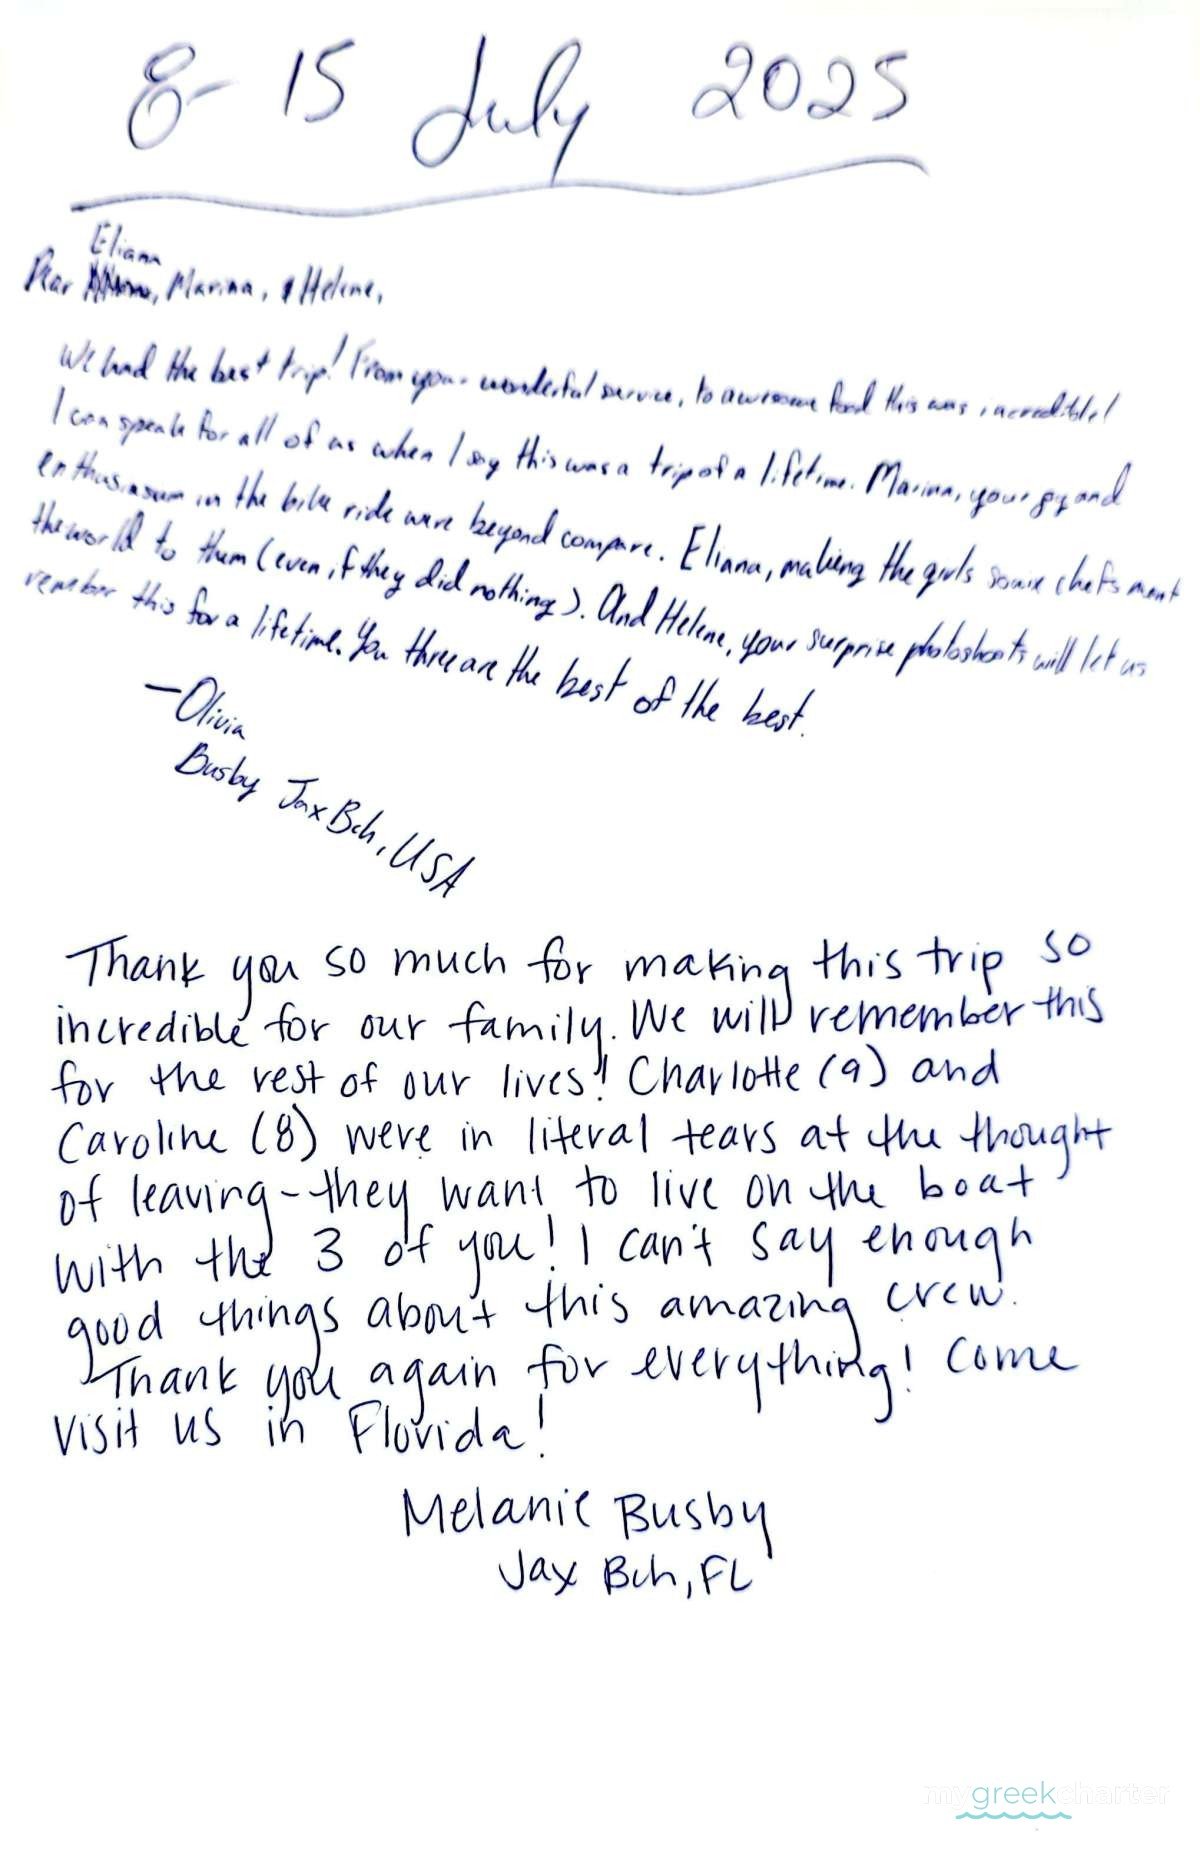 8- 15 July 2025
Eliana
Dear , Marina, & Helene,
We had the best trip! From your wonderful service, to awesome food this was incredible!
I can speak for all of us when I say this was a trip of a lifetime. Marina, your joy and
enthusiasum in the bike ride were beyond compare. Eliana, making the girls chefs ment
the world to them (even if they did nothing). And Helene, your surprise photoshoots will let us
remember this for a lifetime. You three are the best of the best.
—Olivia
Busby Jax Bch, USA
Thank you so much for making this trip so
incredible for our family. We will remember this
for the rest of our lives! Charlotte (9) and
Caroline (8) were in literal tears at the thought
of leaving - they want to live on the boat
with the 3 of you! I can't say enough
good things about this amazing crew.
Thank you again for everything! Come
visit us in Florida!
Melanie Busby
Jax Bch, FL
mygreekcharter